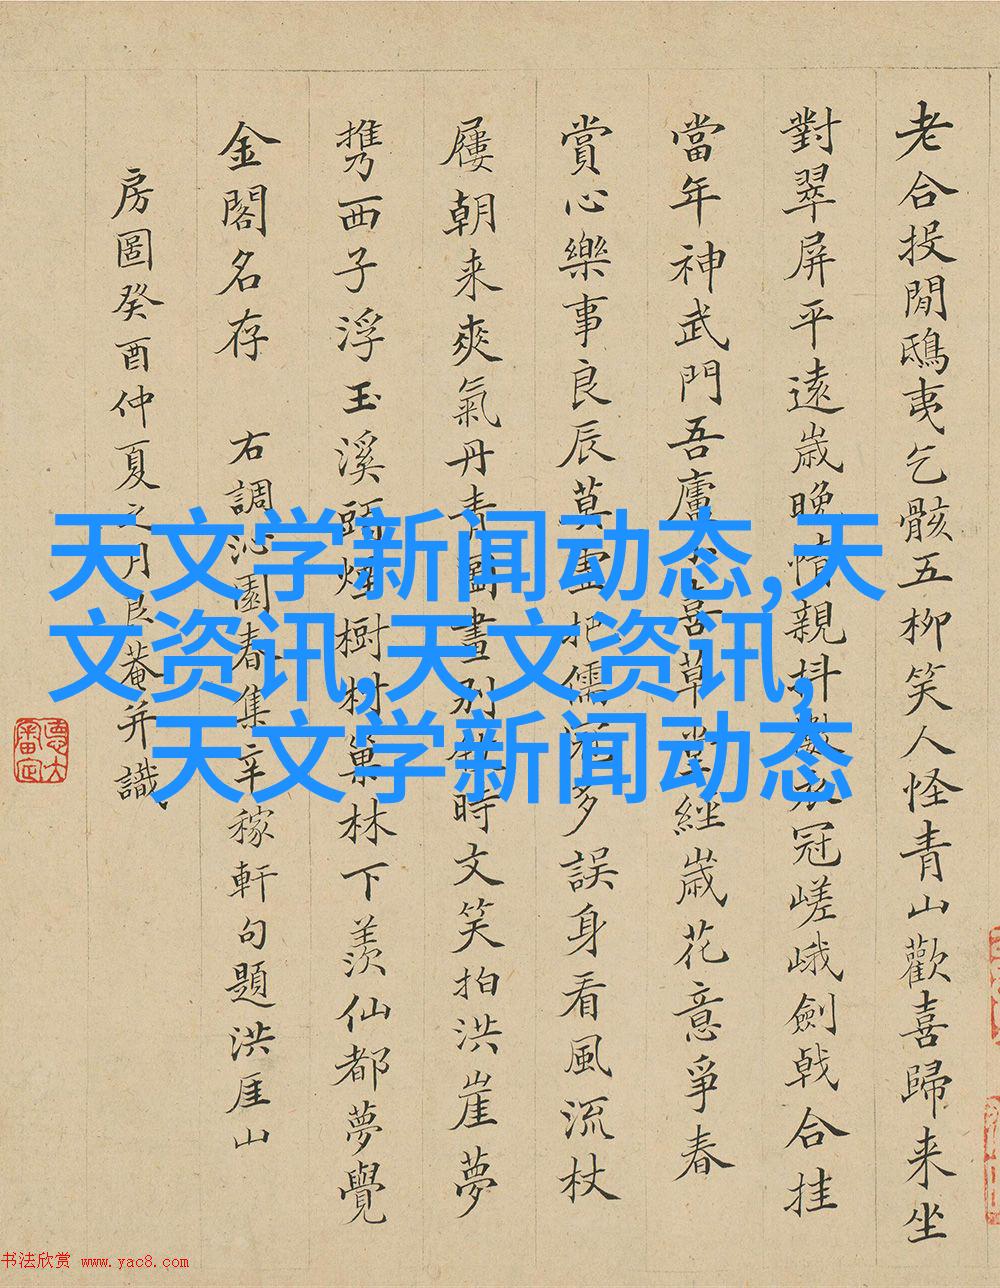 老合投閒鴟夷乞骸五柳笑人怪青山歡喜歸来坐
對翠屏平遠歲晚情親抖擻衣冠嵯峨劍戟合挂
當年神武門吾廬小喜草堂經歲花意爭春
賞心樂事良辰莫把儒冠多誤身看風流杖
屨朝来爽氣丹青圖畫别時文笑拍洪崖夢
携西子浮玉溪頭煙樹村巢林下羨仙都夢覺
金閣名存 右調沁園春集辛稼軒句題洪厓山
房圖癸酉仲夏之月良菴并識
天文学新闻动态,天
文资讯,天文资讯,
天文学新闻动态
书法欣赏 www.yac8.com